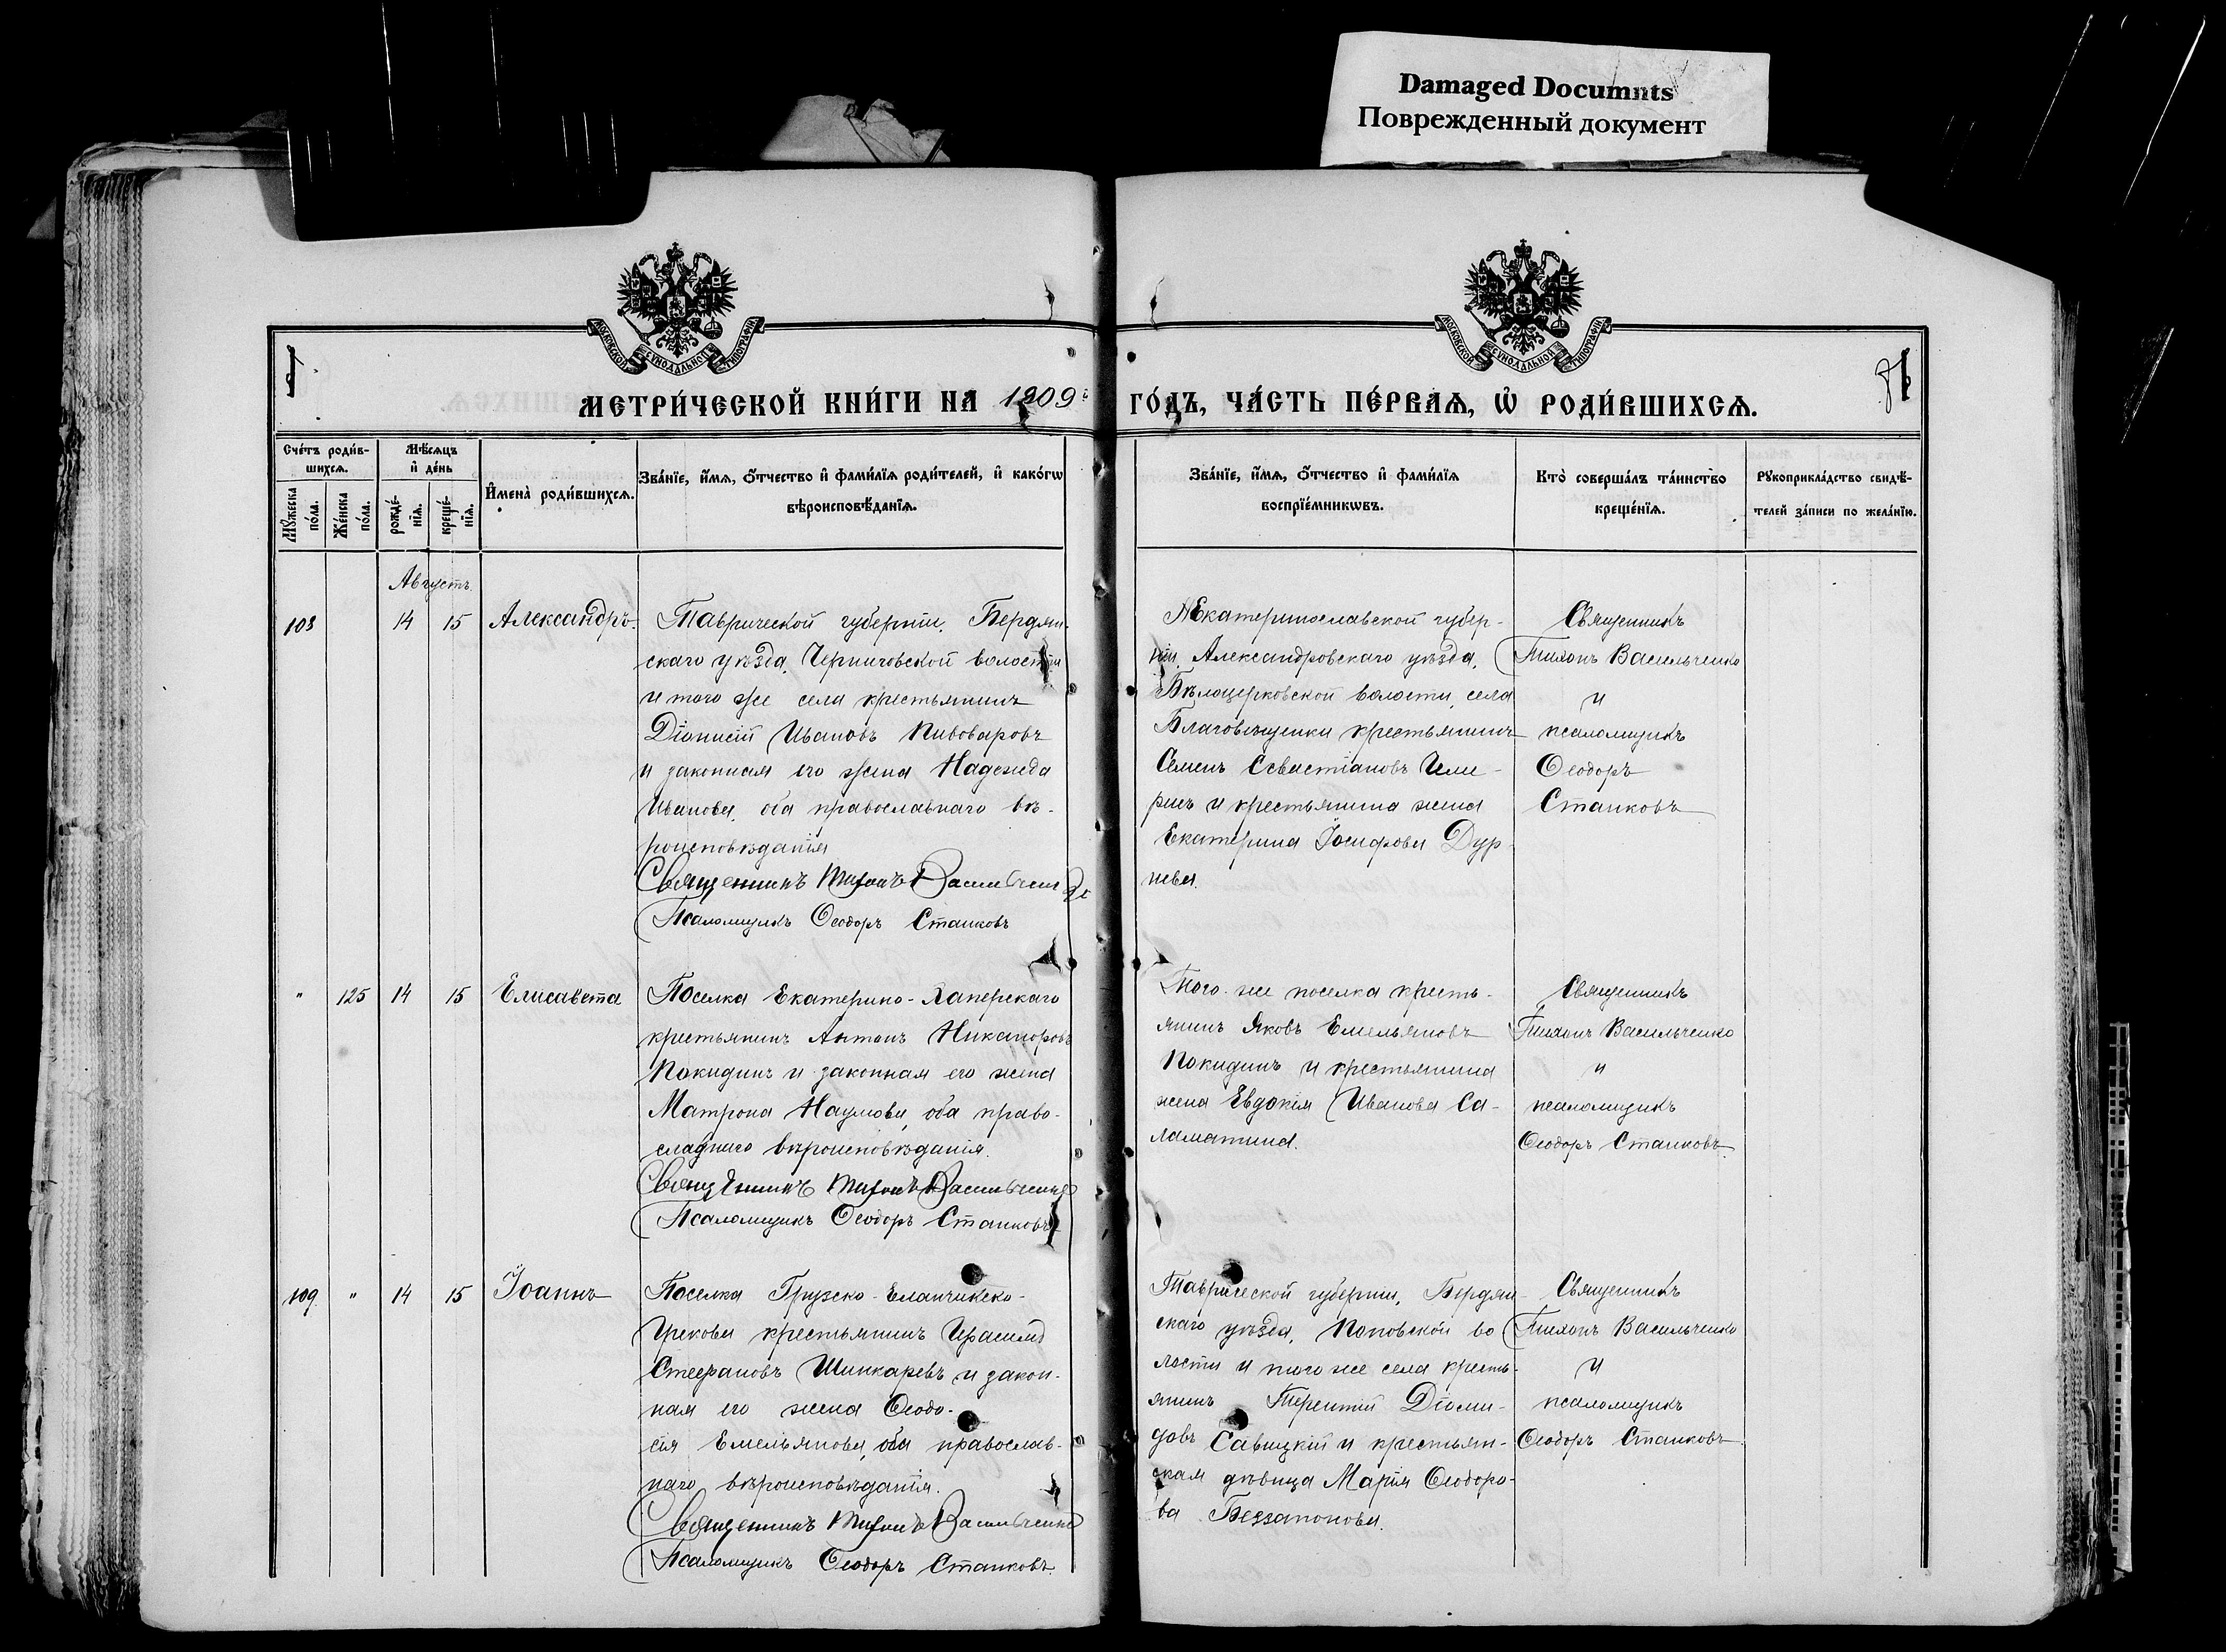 Damaged Documnts
Поврежденный документ
МОСКОВСКОЙ СѴНОДАЛЬНОЙ ТИПОГРАФІИ
МОСКОВСКОЙ СѴНОДАЛЬНОЙ ТИПОГРАФІИ
МЕТРИ́ЧЕСКОЙ КНИ́ГИ НА 1909
ГО́ДЪ, ЧА́СТЬ ПЕ́РВАѦ, Ѡ РОДИ́ВШИХСѦ.
Сче́тъ роди́в-
шихсѧ.
Мѣ́сѧцъ
и҆ де́нь
И҆мена̀ роди́вшихсѧ.
Зва́нїе, и҆́мѧ, ѻ҆́тчество и҆ фами́лїѧ роди́телей, и҆ како́гѡ
вѣроисповѣ́данїѧ.
Мꙋ́жеска
по́ла.
Же́нска
по́ла.
рожде́-
нїѧ.
креще́-
нїѧ.
Зва́нїе, и҆́мѧ, ѻ҆́тчество и҆ фами́лїѧ
воспрїе́мникѡвъ.
Кто̀ соверша́лъ та́инство
креще́нїѧ.
Рꙋкоприкла́дство свидѣ́-
телей за́писи по жела́нїю.
Августъ
108 14 15 Александръ.
Таврической губерніи, Бердян-
скаго уѣзда, Черниговской волости
и того же села крестьянинъ
Діонисій Ивановъ Пивоваровъ
и законная его жена Надежда
Иванова, оба православнаго вѣ-
роисповѣданія
Священникъ Тихонъ Васильченко
Псаломщикъ Ѳеодоръ Станковъ
Екатеринославской губер-
ніи, Александровскаго уѣзда,
Бѣлоцерковской волости, села
Благовѣщенки крестьянинъ
Семенъ Севастіановъ
и крестьянина жена
Екатерина Іосифова Дур-
нева.
Священникъ
Тихонъ Васильченко
и
псаломщикъ
Ѳеодоръ
Станковъ
" 125 14 15 Елисавета
Поселка Екатерино-Хаперскаго
крестьянинъ Антонъ Никаноровъ
Покидинъ и законная его жена
Матрона Наумова, оба право-
славнаго вѣроисповѣданія.
Священникъ Тихонъ Васильченко
Псаломщикъ Ѳеодоръ Станковъ
Того же поселка кресть-
янинъ Яковъ Емельяновъ
Покидинъ и крестьянина
жена Евдокія Иванова Са-
ламатина.
Священникъ
Тихонъ Васильченко
и
псаломщикъ
Ѳеодоръ Станковъ.
109 " 14 15 Іоаннъ
Поселка Грузско-Еланчикско-
Грекова крестьянинъ Герасимъ
Стефановъ Шинкаревъ и закон-
ная его жена Ѳеодо-
сія Емельянова, оба православ-
наго вѣроисповѣданія.
Священникъ Тихонъ Васильченко
Псаломщикъ Ѳеодоръ Станковъ.
Таврической губерніи, Бердян-
скаго уѣзда, Поповской во-
лости и того же села кресть-
янинъ Терентій Діоми-
довъ Савицкій и крестьян-
ская дѣвица Марія Ѳеодоро-
ва Беззапонова.
Священникъ
Тихонъ Васильченко
и
псаломщикъ
Ѳеодоръ Станковъ.